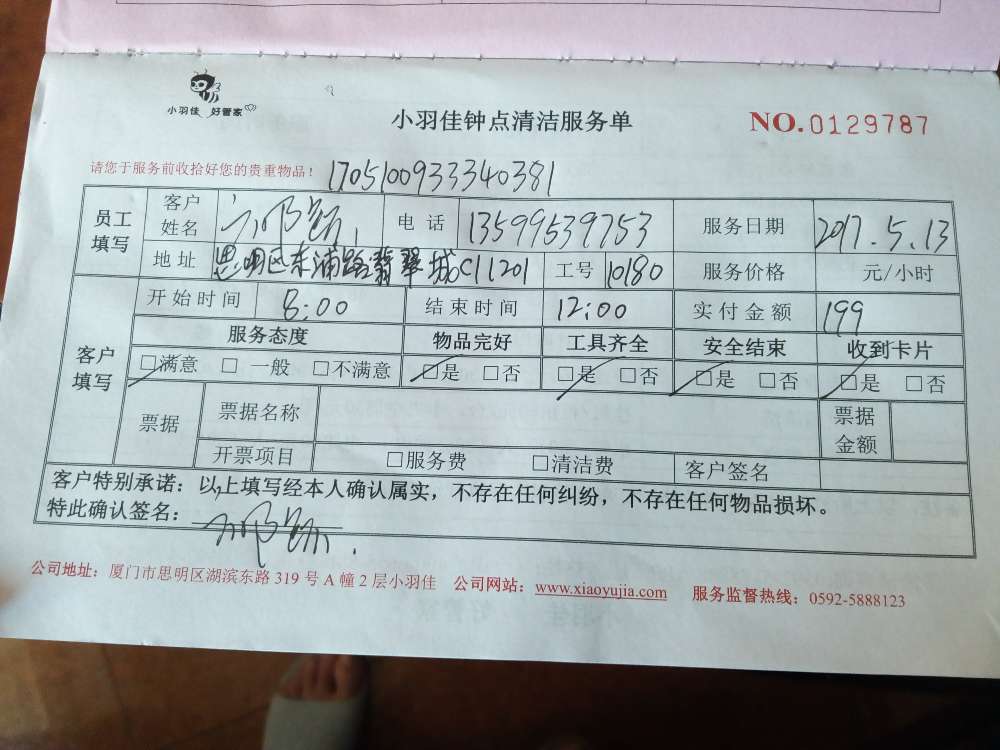 小羽佳 好管家
小羽佳钟点清洁服务单
NO.0129787
请您于服务前收拾好您的贵重物品！ 170510093340381
员工填写 客户姓名 电话 13599539753 服务日期 2017.5.13
地址 思明区东浦路翡翠城C11201 工号 10180 服务价格 元/小时
客户填写 开始时间 8:00 结束时间 12:00 实付金额 199
服务态度 物品完好 工具齐全 安全结束 收到卡片
□满意 □一般 □不满意 □是 □否 □是 □否 □是 □否 □是 □否
票据 票据名称 票据金额
开票项目 □服务费 □清洁费 客户签名
客户特别承诺：以上填写经本人确认属实，不存在任何纠纷，不存在任何物品损坏。
特此确认签名：
公司地址：厦门市思明区湖滨东路319号A幢2层小羽佳 公司网站：www.xiaoyujia.com 服务监督热线：0592-5888123